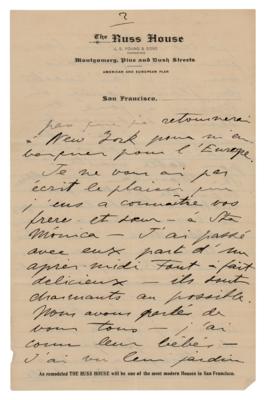 2
The Russ House
J. S. YOUNG & SONS
Montgomery, Pine and Bush Streets
AMERICAN AND EUROPEAN PLAN
San Francisco,
pas que je retournerai
à New York pour m'em
barquer pour l'Europe.
Je ne vous ai pas
écrit le plaisir que
j'eus à connaître vos
frère et sœur – à Sta
Mónica – J'ai passé
avec eux part d'un
après midi tout à fait
délicieux – ils sont
charmants au possible.
Nous avons parlés de
vous tous – j'ai
connu leur bébés –
J'ai vu leur jardin
As remodeled THE RUSS HOUSE will be one of the most modern Houses in San Francisco.